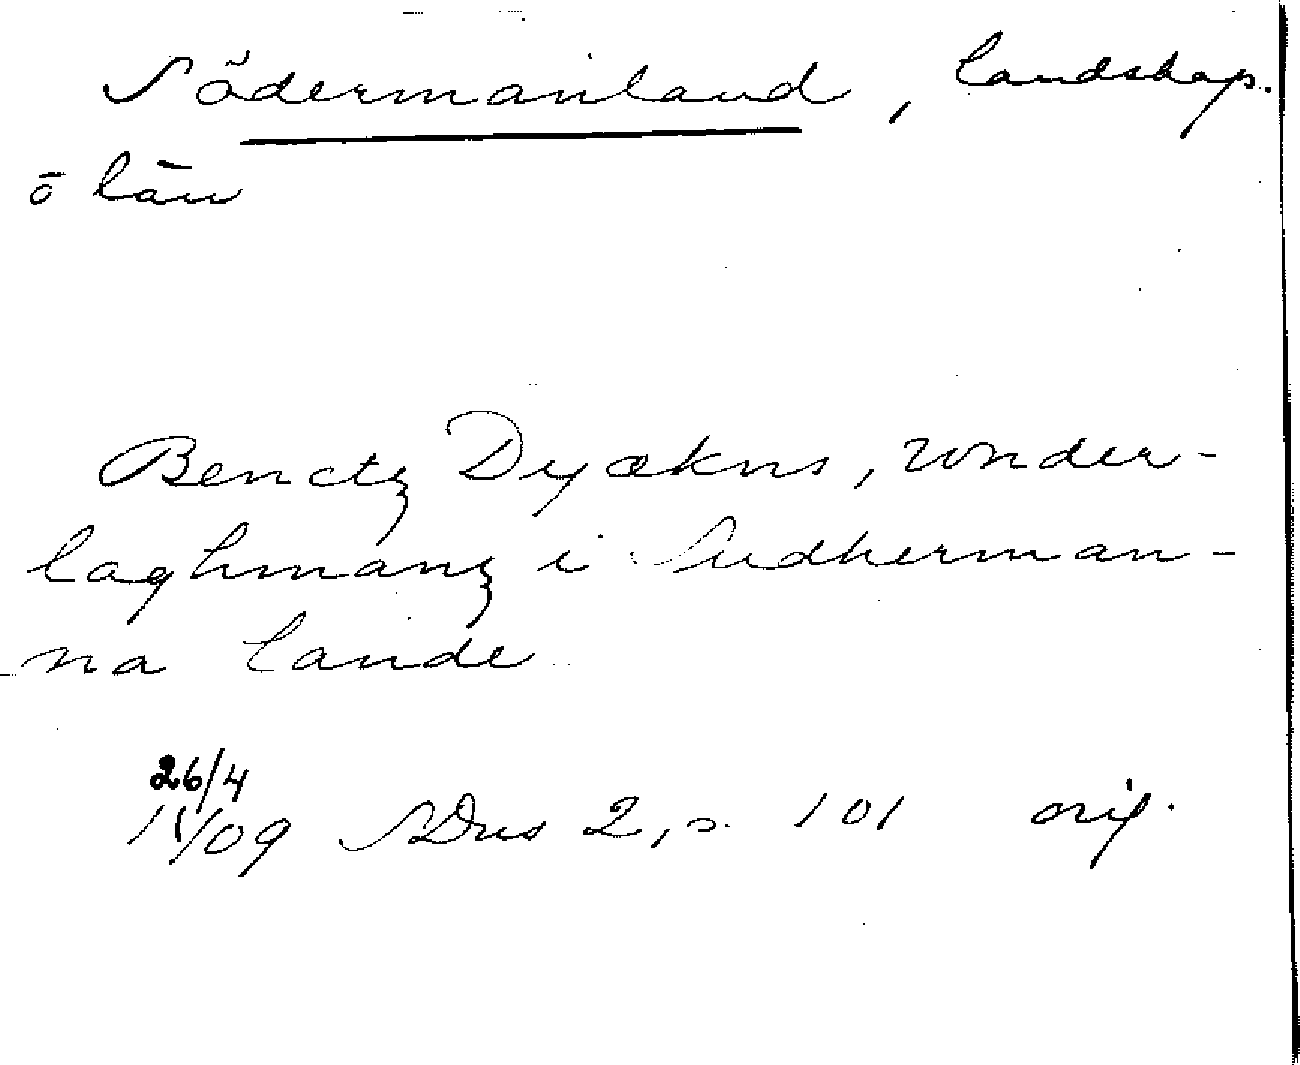 Södermanland, landskap.
o län
Benctz Dyækns, wnder-
laghmanz i Sudherman-
na lande
26/4
14/09 SDns 2, s. 101 orig.